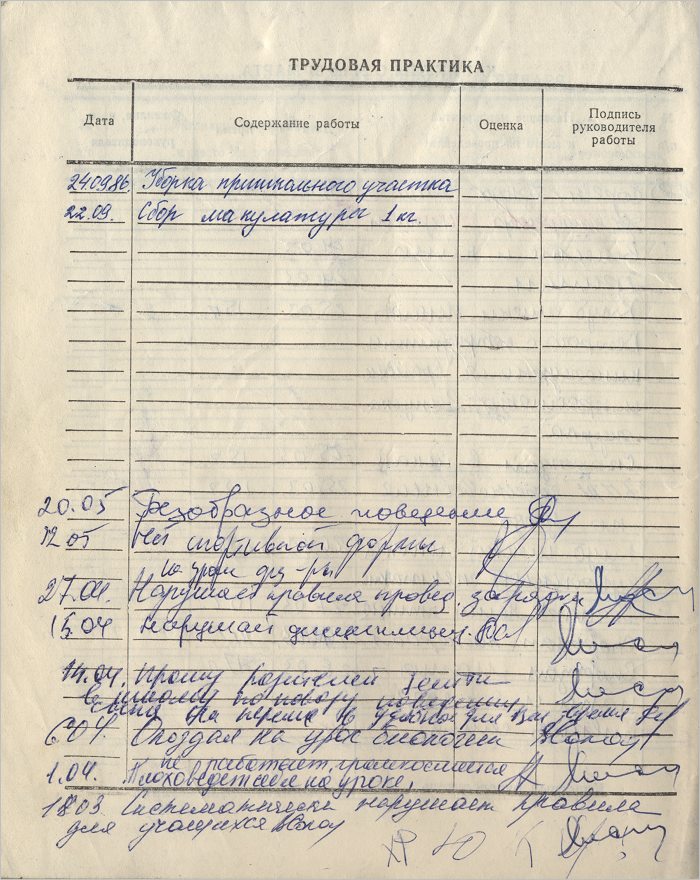 ТРУДОВАЯ ПРАКТИКА
Дата Содержание работы Оценка Подпись руководителя работы
24.09.86 Уборка пришкального участка
22.09. Сбор макулатуры 1 кг.
20.05 Безобразное поведение
12 05 Нет спортивной формы
на урок физ-ры
27.04. Нарушает правила провед. зарядки
15.04 Нарушал дисциплину.
14.04. Прошу родителей зайти
в школу по поводу поведения
сына на перемене в удобное для вас время
6.04. Опоздал на урок биологии
не работает, гримасничает
1.04. Плохо ведет себя на уроке,
18.03 Систематически нарушает правила
для учащихся